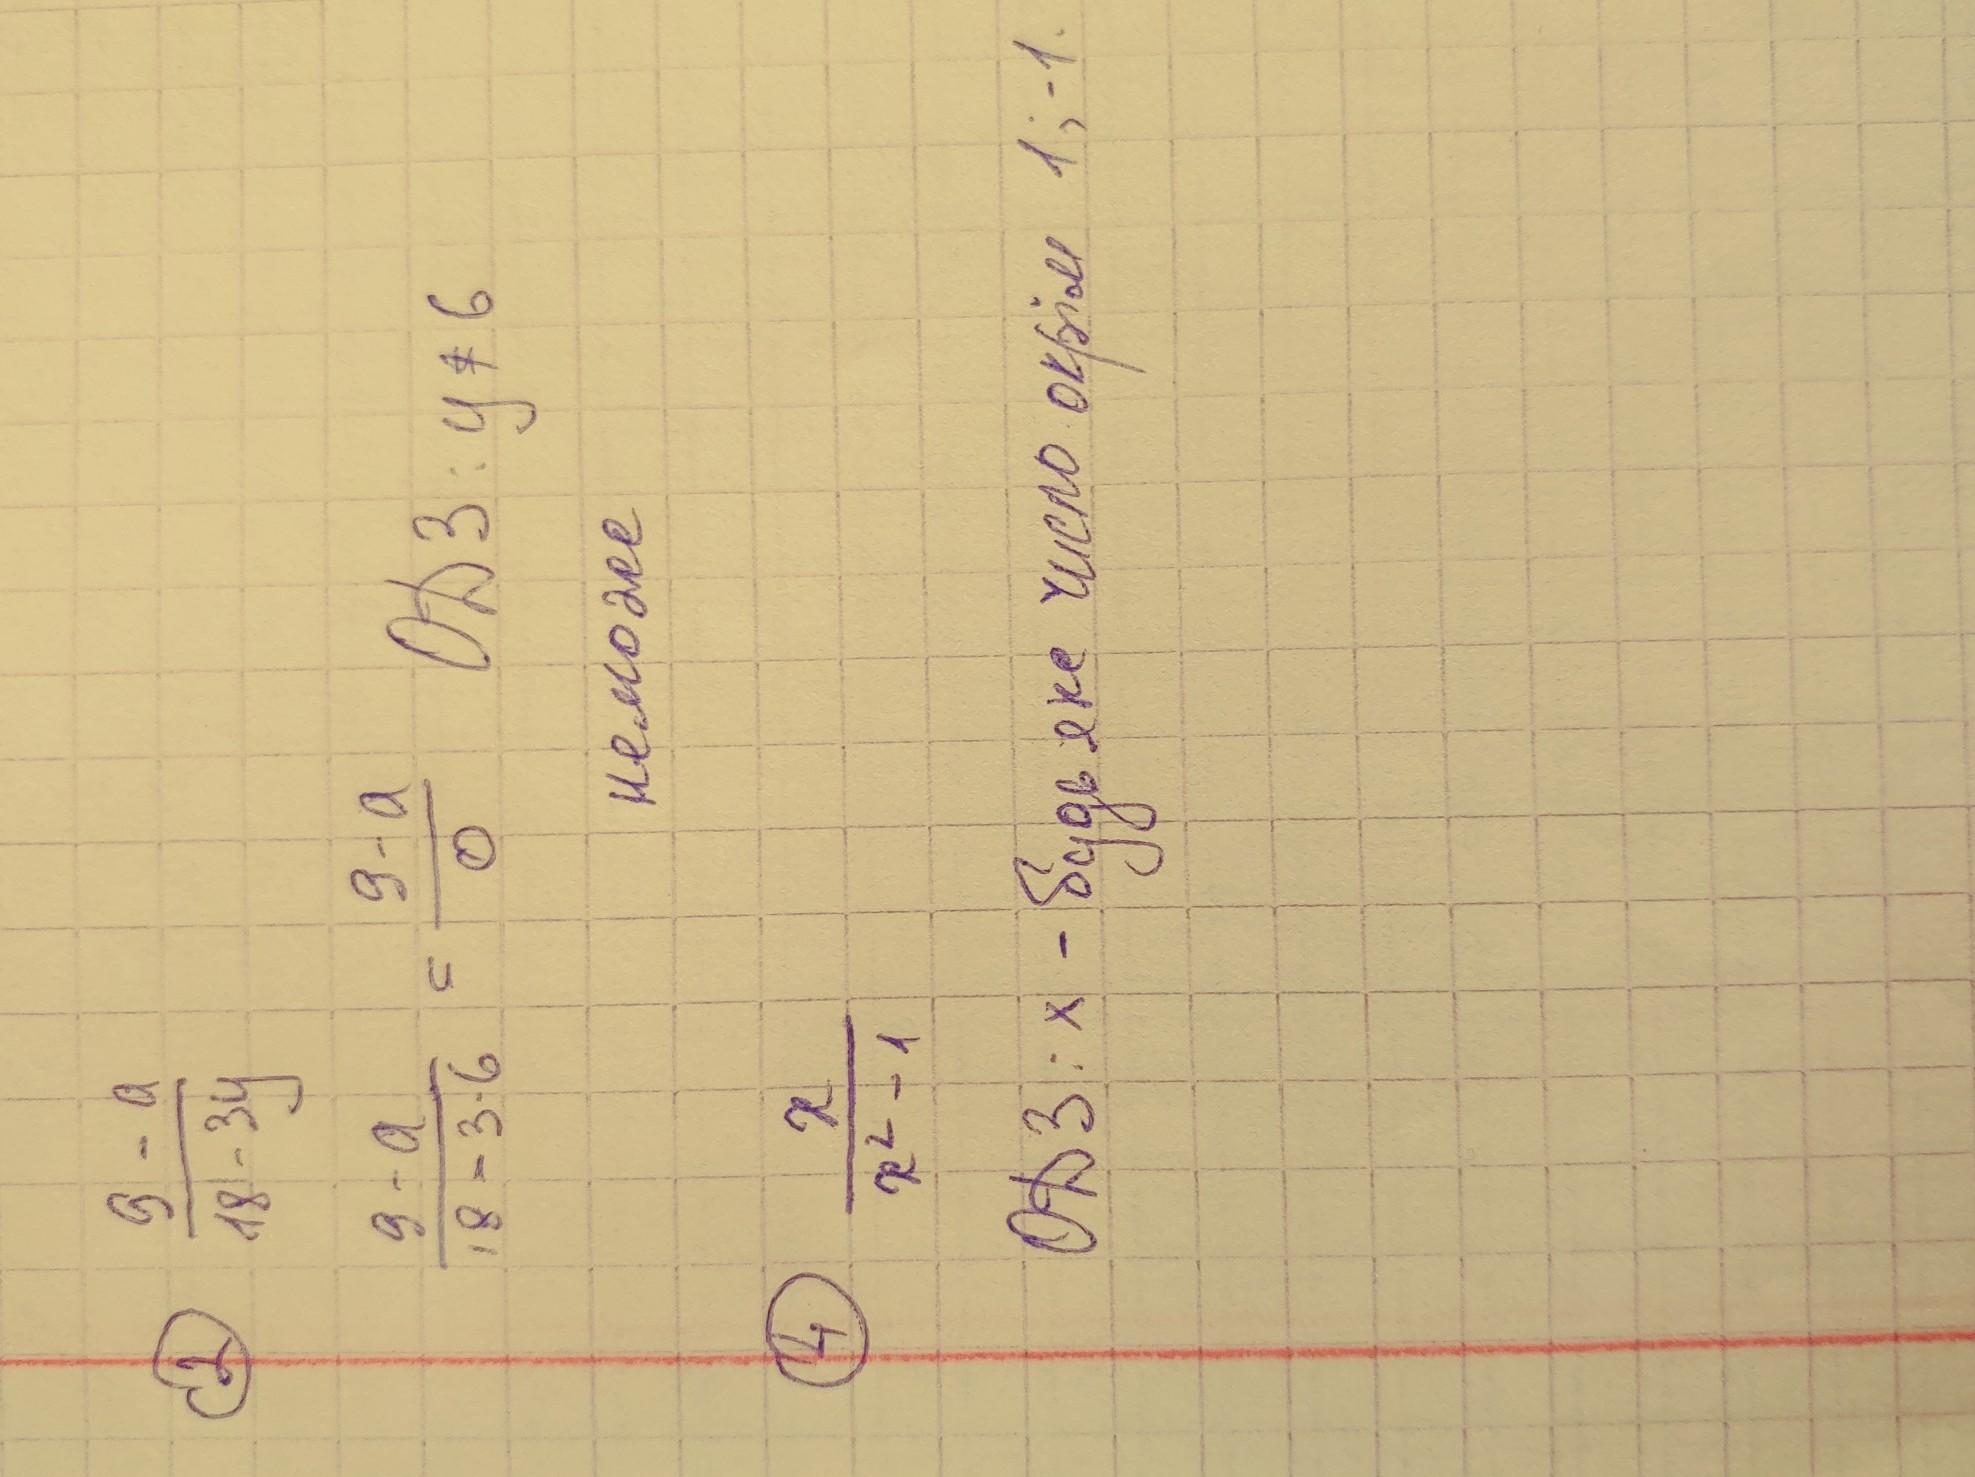 2 9 - a / 18 - 3y
9 - a / 18 - 3·6 = 9 - a / 0 ОДЗ: y ≠ 6
неможе
4 x / x² - 1
ОДЗ: x - будь яке число окрім 1; -1.